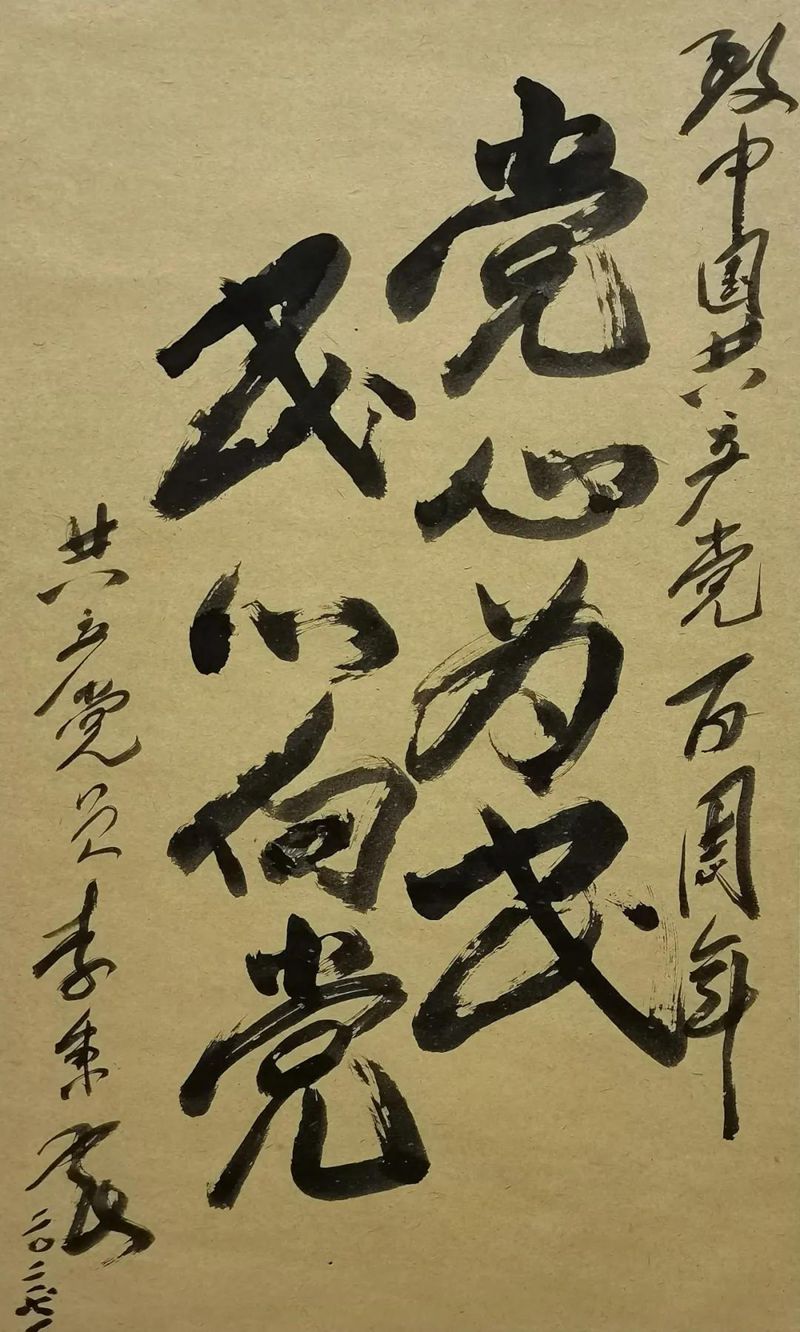 致中国共产党百周年
党心为民
民心向党
共产党员 李秉
二〇二一七一